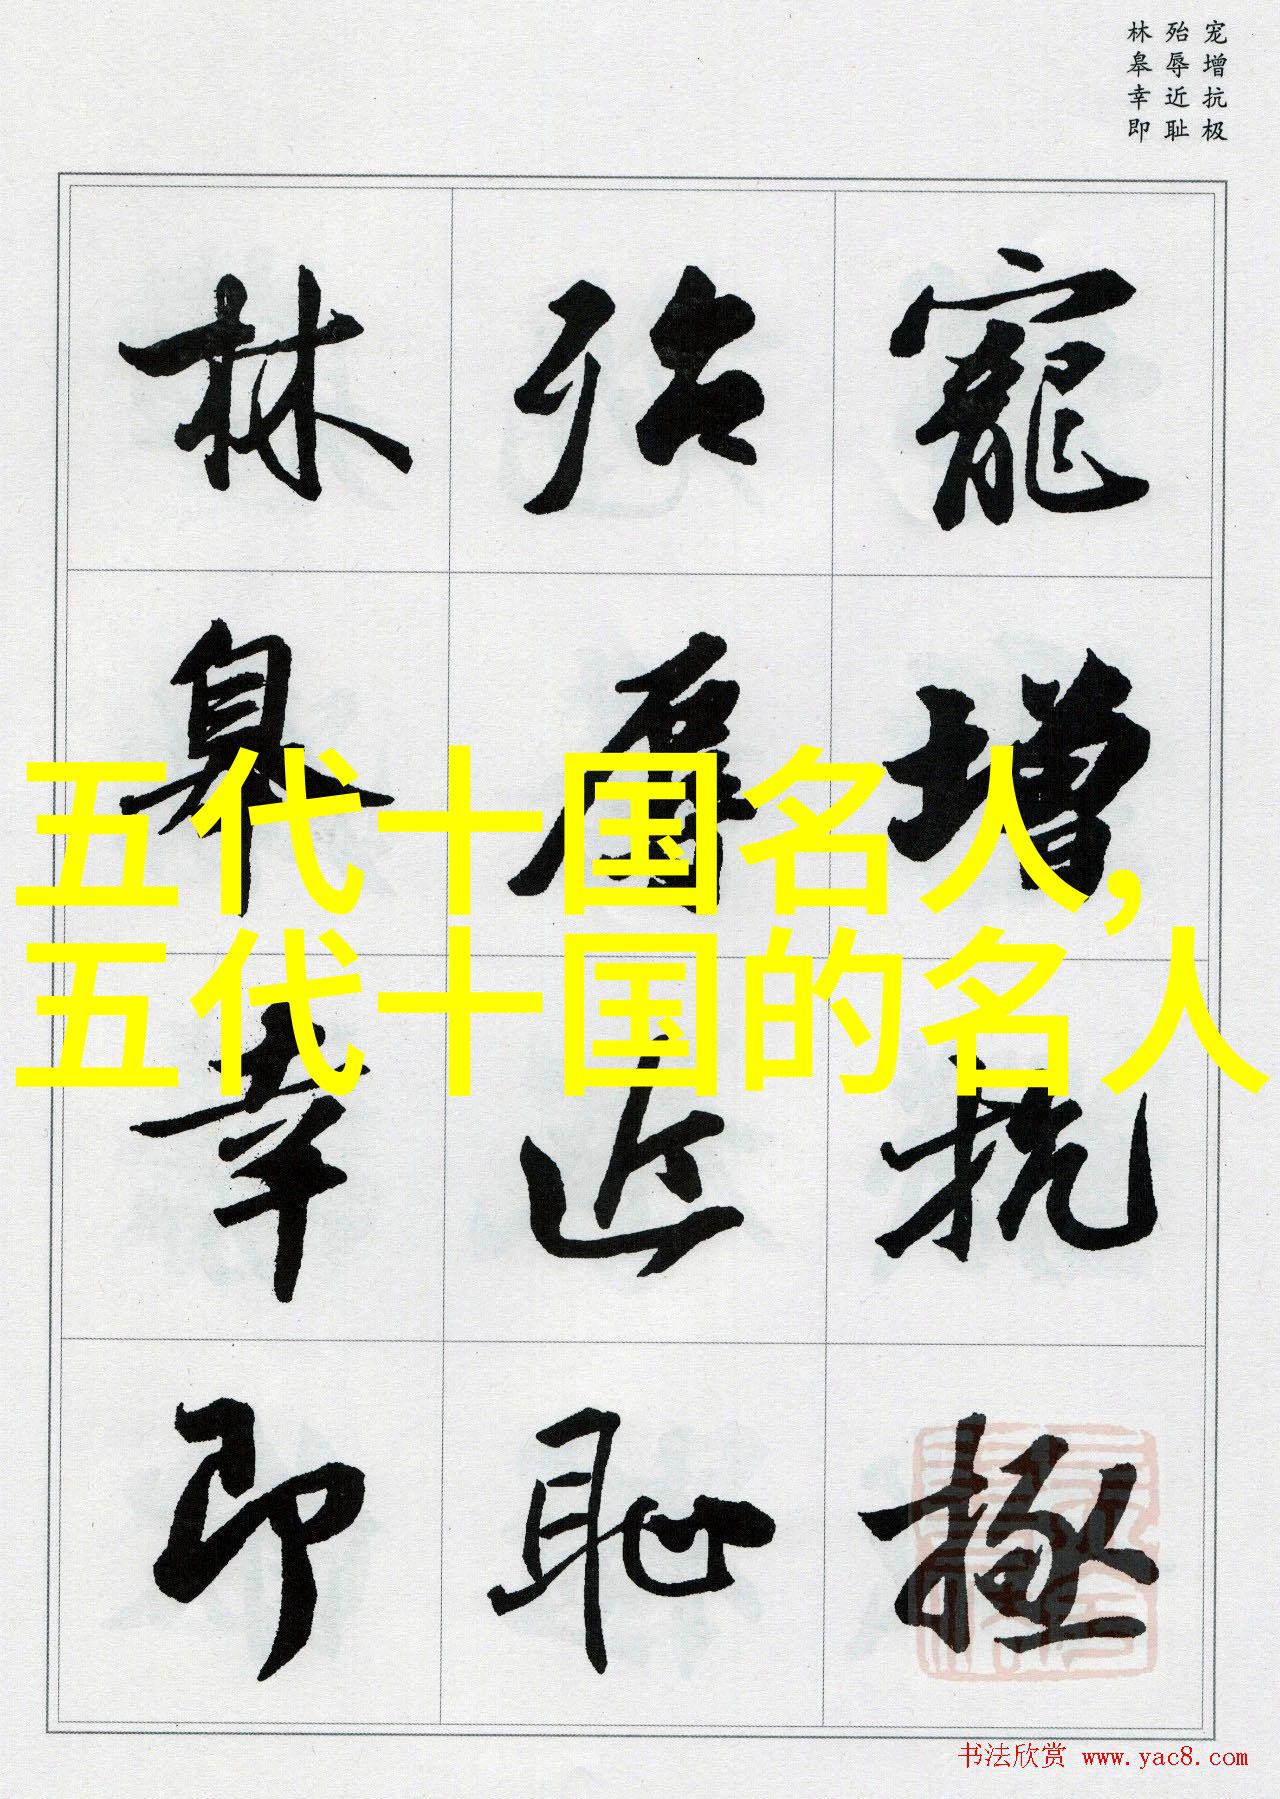 宠增抗极
殆辱近耻
林皋幸即
寵增抗極
殆辱近恥
林皋幸即
五代十国名人,
五代十国的名人
书法欣赏 www.yac8.com